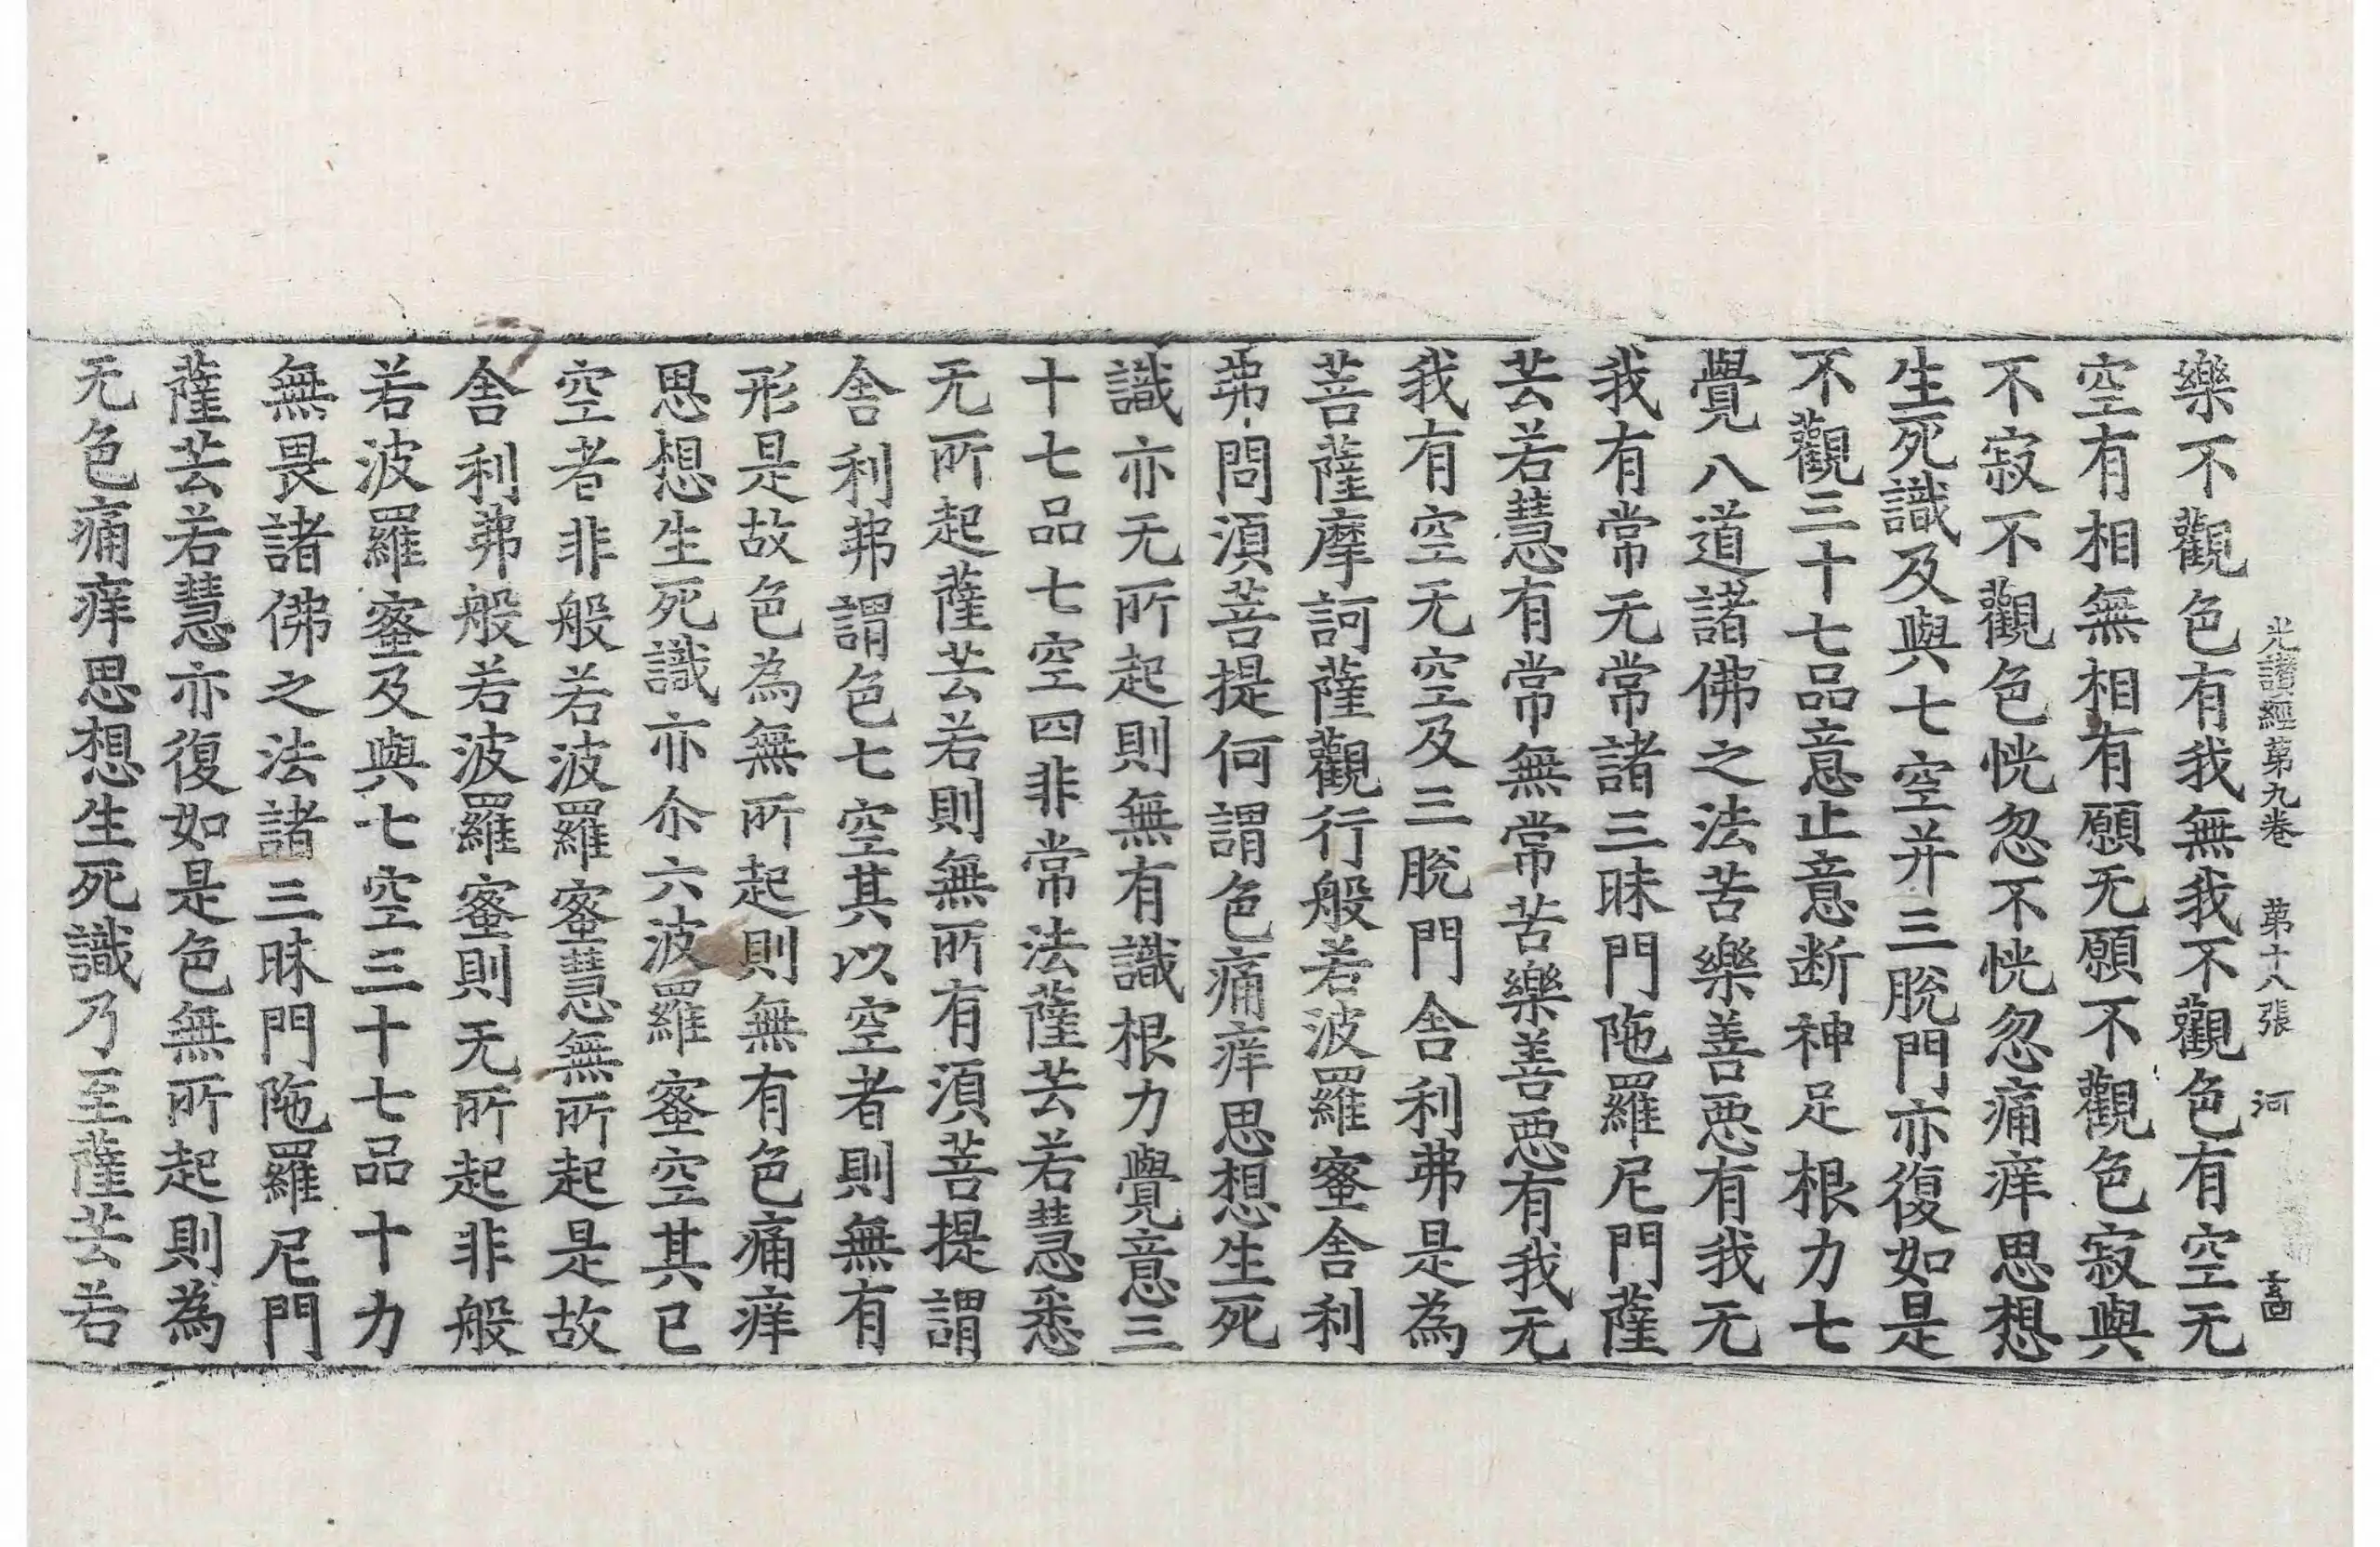 光讃經第九卷 第十八張 河
樂不觀色有我無我不觀色有空无
空有相無相有願无願不觀色寂與
不寂不觀色恍忽不恍忽痛痒思想
生死識及與七空并三脫門亦復如是
不觀三十七品意止意断神足根力七
覺八道諸佛之法苦樂善惡有我无
我有常无常諸三昧門陁羅尼門薩
芸若慧有常無常苦樂善惡有我无
我有空无空及三脫門舎利弗是為
菩薩摩訶薩觀行般若波羅蜜舎利
弗問湏菩提何謂色痛痒思想生死
識亦无所起則無有識根力覺意三
十七品七空四非常法薩芸若慧悉
无所起薩芸若則無所有湏菩提謂
舎利弗謂色七空其以空者則無有
形是故色為無所起則無有色痛痒
思想生死識亦尒六波羅蜜空其已
空者非般若波羅蜜慧無所起是故
舎利弗般若波羅蜜則无所起非般
若波羅蜜及與七空三十七品十力
無畏諸佛之法諸三昧門陁羅尼門
薩芸若慧亦復如是色無所起則為
无色痛痒思想生死識乃至薩芸若